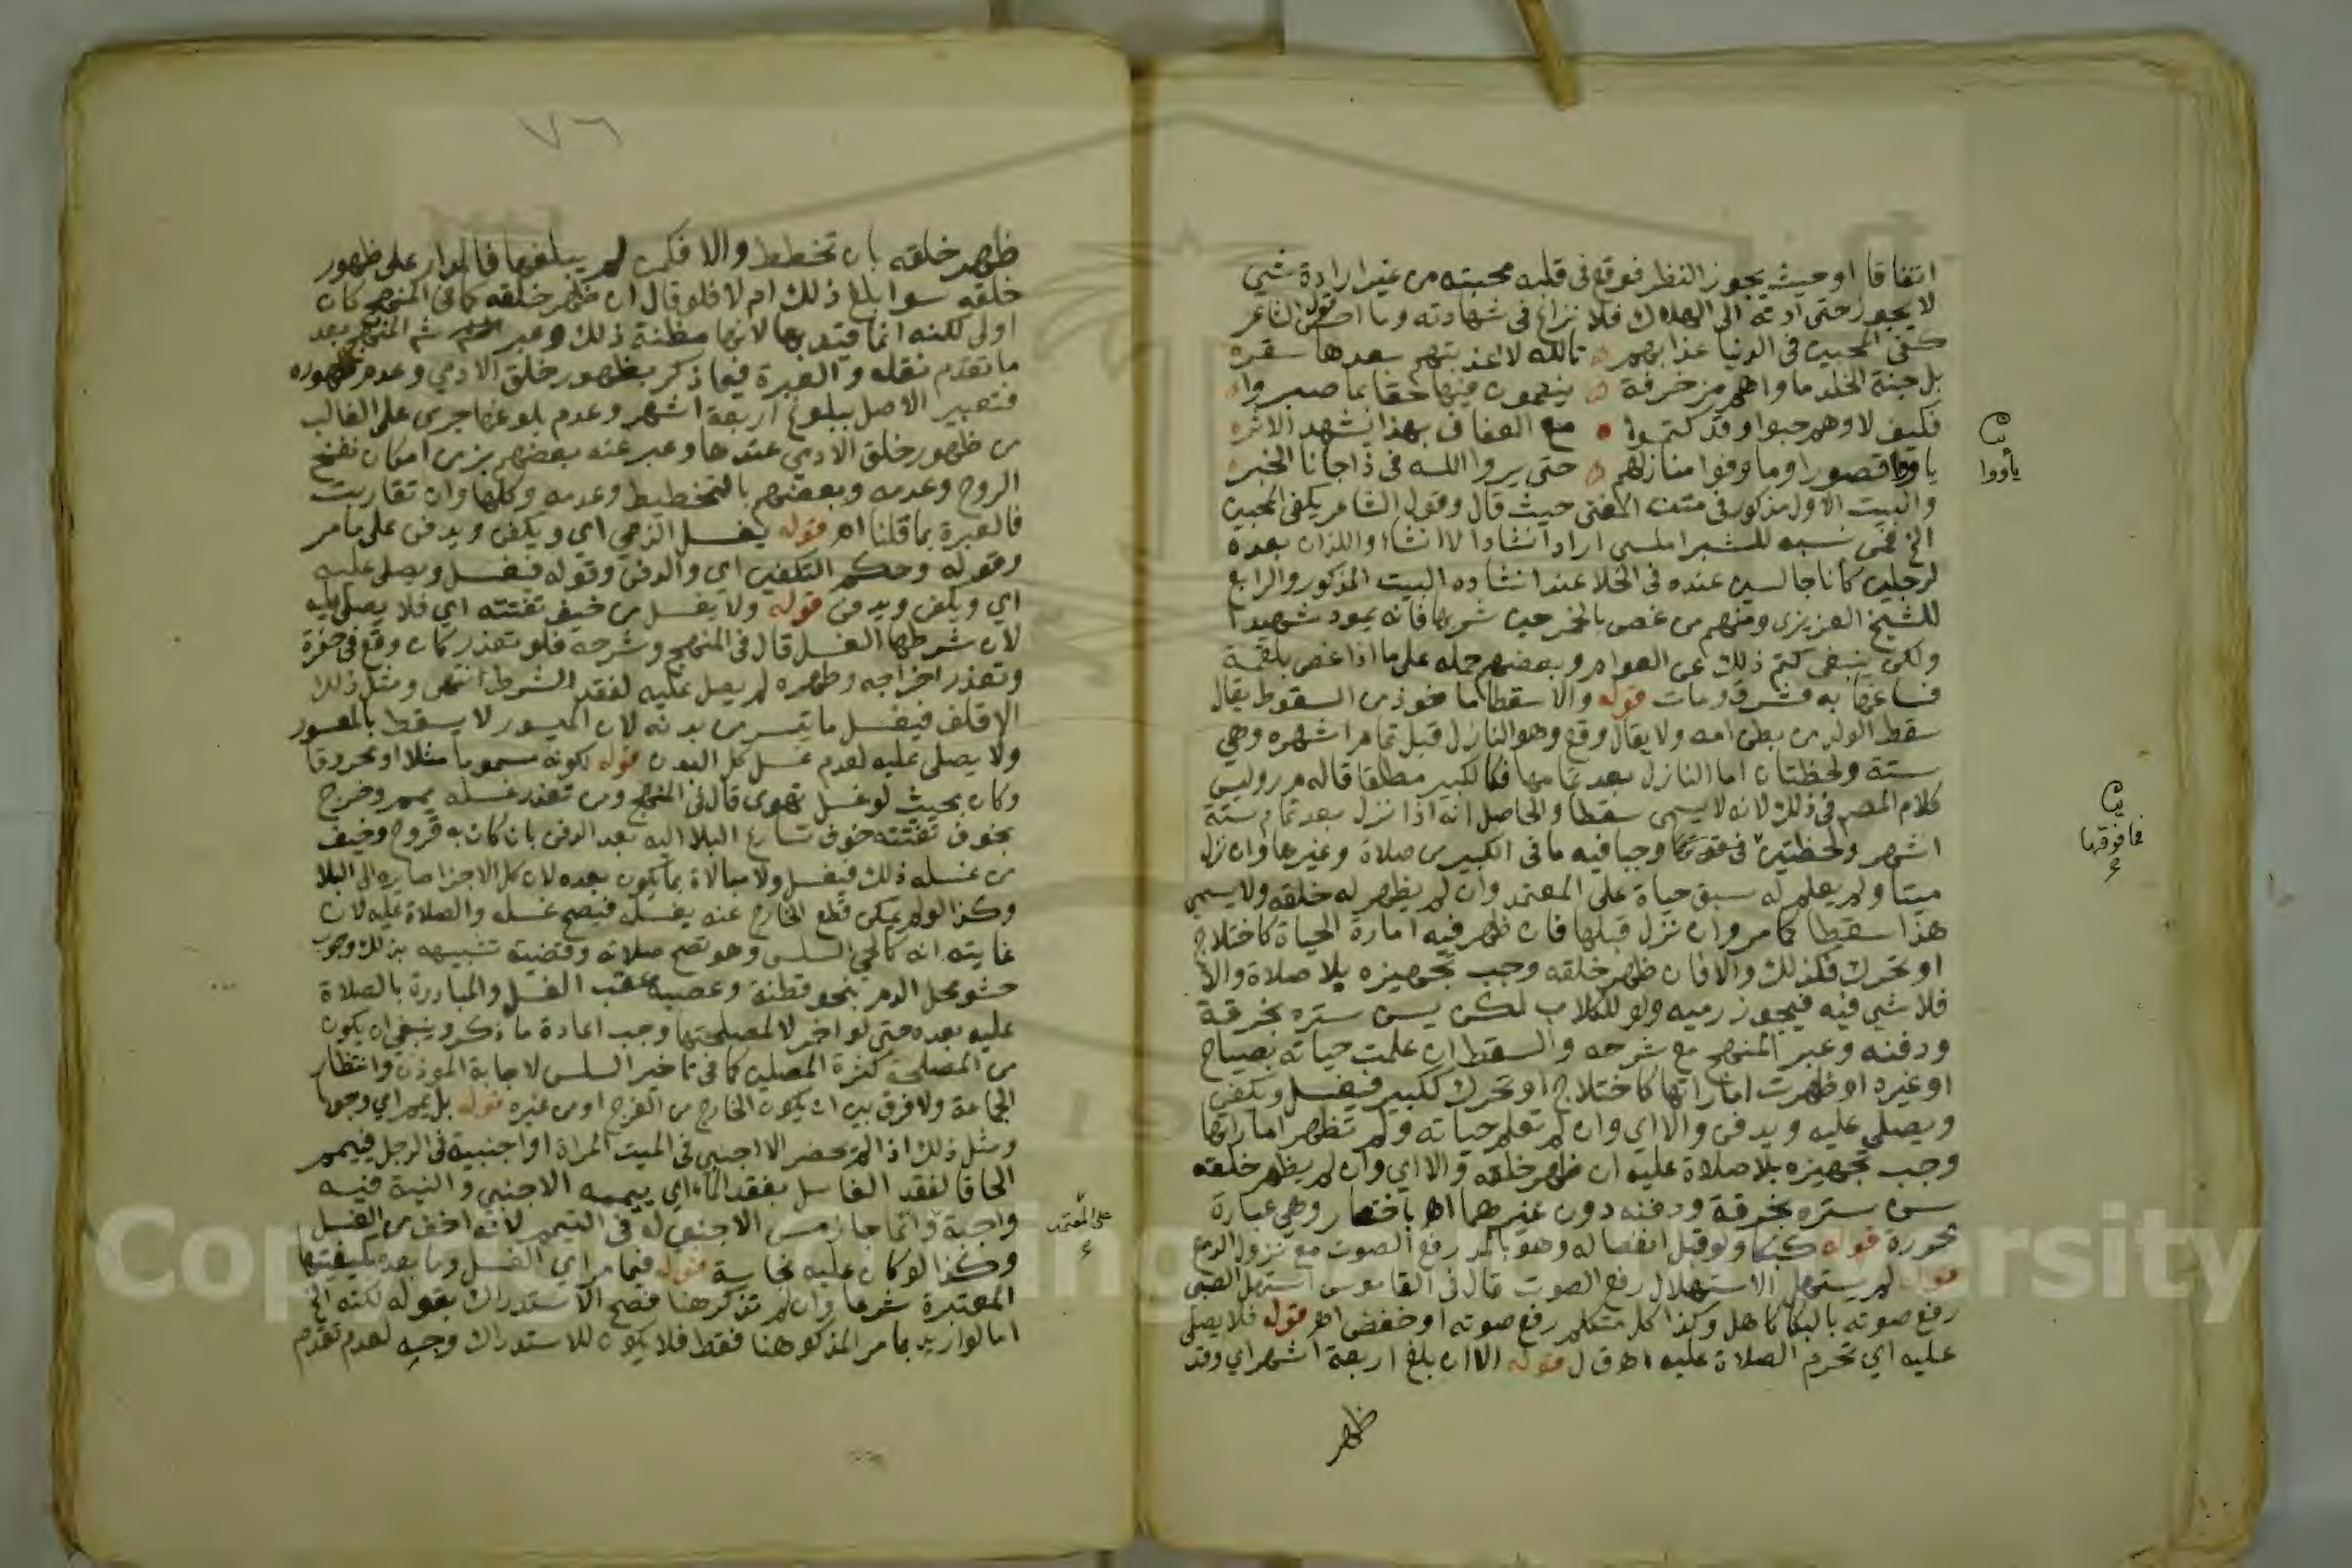 اتفاقا او حيث يجوز النظر فوقع فى قلبه محبته من غير ارادة شي
لا يجوز حتى ادته الى الهلاك فلا نزاع فى شهادته وما احسن قول الشاعر
كفى المحبين فى الدنيا عذابهم تالله لا عذبتهم بعدها سقر
بل جنة الخلد ماواهم مزخرفة ينعمون فيها حقا بما صبروا
فكيف لا وهم حبوا وقد كتموا مع العفاف بهذا يشهد الاثر
ياووا قصورا وما وفوا منازلهم حتى يروا الله فى ذا جانا الخبر
والبيت الاول مذكور فى متن المغنى حيث قال وقول الشاعر يكفى المحبين
الخ فمن نسبه للشبراملسى اراد انشادا لا انشاء واللذان بعده
لرجلين كانا جالسين عنده فى الخلا عند انشاده البيت المذكور والرابع
للشيخ العزيزى ومنهم من غص بالخمر حين شربها فانه يموت شهيدا
ولكن ينبغى كتم ذلك عن العوام وبعضهم حمله على ما اذا غص بلقمة
فساغها به فشرق ومات قوله والاسقطا ماخوذ من السقوط يقال
سقط الولد من بطن امه ولا يقال وقع وهو النازل قبل تمام اشهره وهي
ستة ولحظتان اما النازل بعد تمامها فكالكبير مطلقا قاله م ر وليس
كلام المصم فى ذلك لانه لا يسمى سقطا والحاصل انه اذا نزل بعد تمام ستة
اشهر ولحظتين وجبا فيه ما فى الكبير من صلاة وغيرها وان نزل
ميتا ولم يعلم له سبق حياة على المعتمد وان لم يظهر له خلقه ولا يسمى
هذا سقطا كما مر وان نزل قبلها فان ظهر فيه امارة الحياة كاختلاج
او تحرك فكذلك والا فان ظهر خلقه وجب تجهيزه بلا صلاة والا
فلا شي فيه فيجوز رميه ولو للكلاب لكن يسن ستره بخرقة
ودفنه وعبر المنهج مع شرحه والسقط ان علمت حياته بصياح
او غيره او ظهرت اماراتها كاختلاج او تحرك ككبير فيغسل ويكفن
ويصلى عليه ويدفن والا اي وان لم تعلم حياته ولم تظهر اماراتها
وجب تجهيزه بلا صلاة عليه ان ظهر خلقه والا اي وان لم يظهر خلقه
سن ستره بخرقة ودفنه دون غيرهما اه باختصار وهي عبارة
محررة قوله كبكا ولو قبل انفصاله وهو بالمد رفع الصوت مع نزول الدمع
قوله لم يستهل الاستهلال رفع الصوت قال فى القاموس استهل الصبى
رفع صوته بالبكا كاهل وكذا كل متكلم رفع صوته او خفض اه قوله فلا يصلى
عليه اي تحرم الصلاة عليه اه ق ل قوله الا ان بلغ اربعة اشهر اي وقد
ظهر
ياووا
فما فوقها
٧٦
ظهر خلقه بان تخطط والا فكمن لم يبلغها فالمدار على ظهور
خلقه سوا بلغ ذلك ام لا فلو قال ان ظهر خلقه كما فى المنهج كان
اولى لكنه انما قيد بها لانها مظنة ذلك وعبر شم المنهج بعد
ما تقدم نقله والعبرة فيما ذكر بظهور خلق الادمي وعدم ظهوره
فتعبير الاصل ببلوغ اربعة اشهر وعدم بلوغها جرى على الغالب
من ظهور خلق الادمي عندها وعبر عنه بعضهم بزمن امكان نفخ
الروح وعدمه وبعضهم بالتخطيط وعدمه وكلها وان تقاربت
فالعبرة بما قلنا اه قوله يغسل الذمي اي ويكفن ويدفن على ما مر
وقوله وحكم التكفين اي والدفن وقوله فيغسل ويصلى عليه
اي ويكفن ويدفن قوله ولا يغسل من خيف تفتته اي فلا يصلى عليه
لان شرطها الغسل قال فى المنهج وشرحه فلو تعذر كان وقع فى حفرة
وتعذر اخراجه وطهره لم يصل عليه لفقد الشرط انتهى ومثل ذلك
الاقلف فيغسل ما تيسر من بدنه لان الميسور لا يسقط بالمعسور
ولا يصلى عليه لعدم غسل كل البدن قوله لكونه مسموما مثلا او محروقا
وكان بحيث لو غسل تهرى قال فى المنهج ومن تعذر غسله يمم وخرج
بخوف تفتته خوف تسارع البلا اليه بعد الدفن بان كان به قروح وخيف
من غسله ذلك فيغسل ولا مبالاة بما يكون بعده لان كل الاجزا صايره الى البلا
وكذا لو لم يمكن قطع الخارج عنه بغسله فيصح غسله والصلاة عليه لان
غايته انه كالحي السلس وهو تصح صلاته وقضية تشبيهه بذلك وجوب
حشو محل الدم بنحو قطنة وعصبه عقب الغسل والمبادرة بالصلاة
عليه بعده حتى لو اخر لا لمصلحتها وجب اعادة ما ذكر وينبغى ان يكون
من المصلحة كثرة المصلين كما فى تاخير السلس لاجابة الموذن وانتظار
الجماعة ولا فرق بين ان يكون الخارج من الفرج او من غيره قوله بل يمم اي وجوبا
ومثل ذلك اذا لم يحضر الا اجنبي فى الميت المراة او اجنبية فى الرجل فييمم
الحاقا لفقد الغاسل بفقد الماء اي ييممه الاجنبي والنية فيه
واجبة وانما جاز مس الاجنبى له فى التيمم لانه اخف من الغسل
وكذا لو كان عليه نجاسة قوله فيما مر اي الغسل وما بعده بكيفيتها
المعتبرة شرعا وان لم تذكر هنا فصح الاستدراك بقوله لكنه الخ
اما لو اريد بما مر المذكور هنا فقط فلا يكون للاستدراك وجه لعدم تقدم
على المعتمد
Copying University